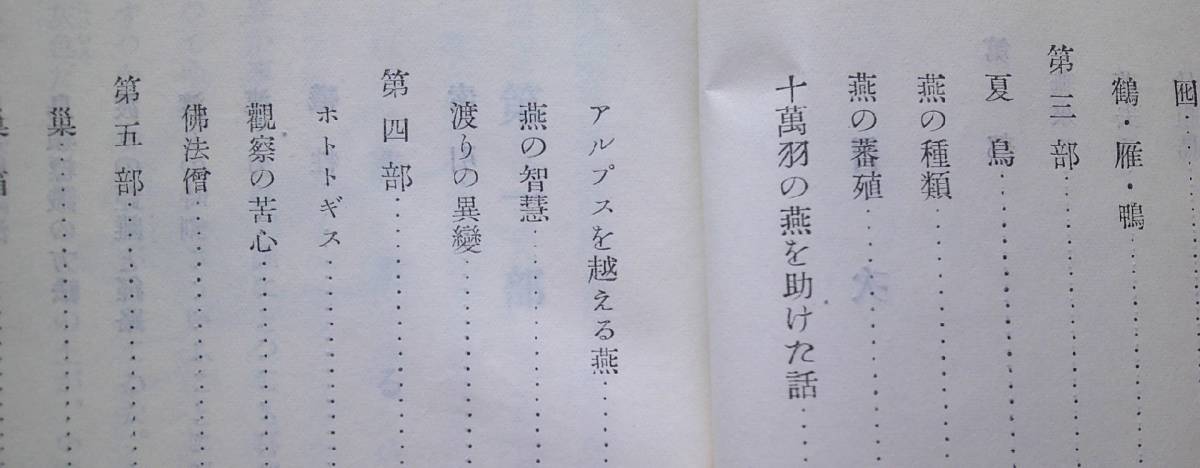 囮
鶴・雁・鴨
第三部
夏鳥
燕の種類
燕の蕃殖
十萬羽の燕を助けた話
アルプスを越える燕
燕の智慧
渡りの異變
第四部
ホトトギス
觀察の苦心
佛法僧
第五部
巢
巢箱